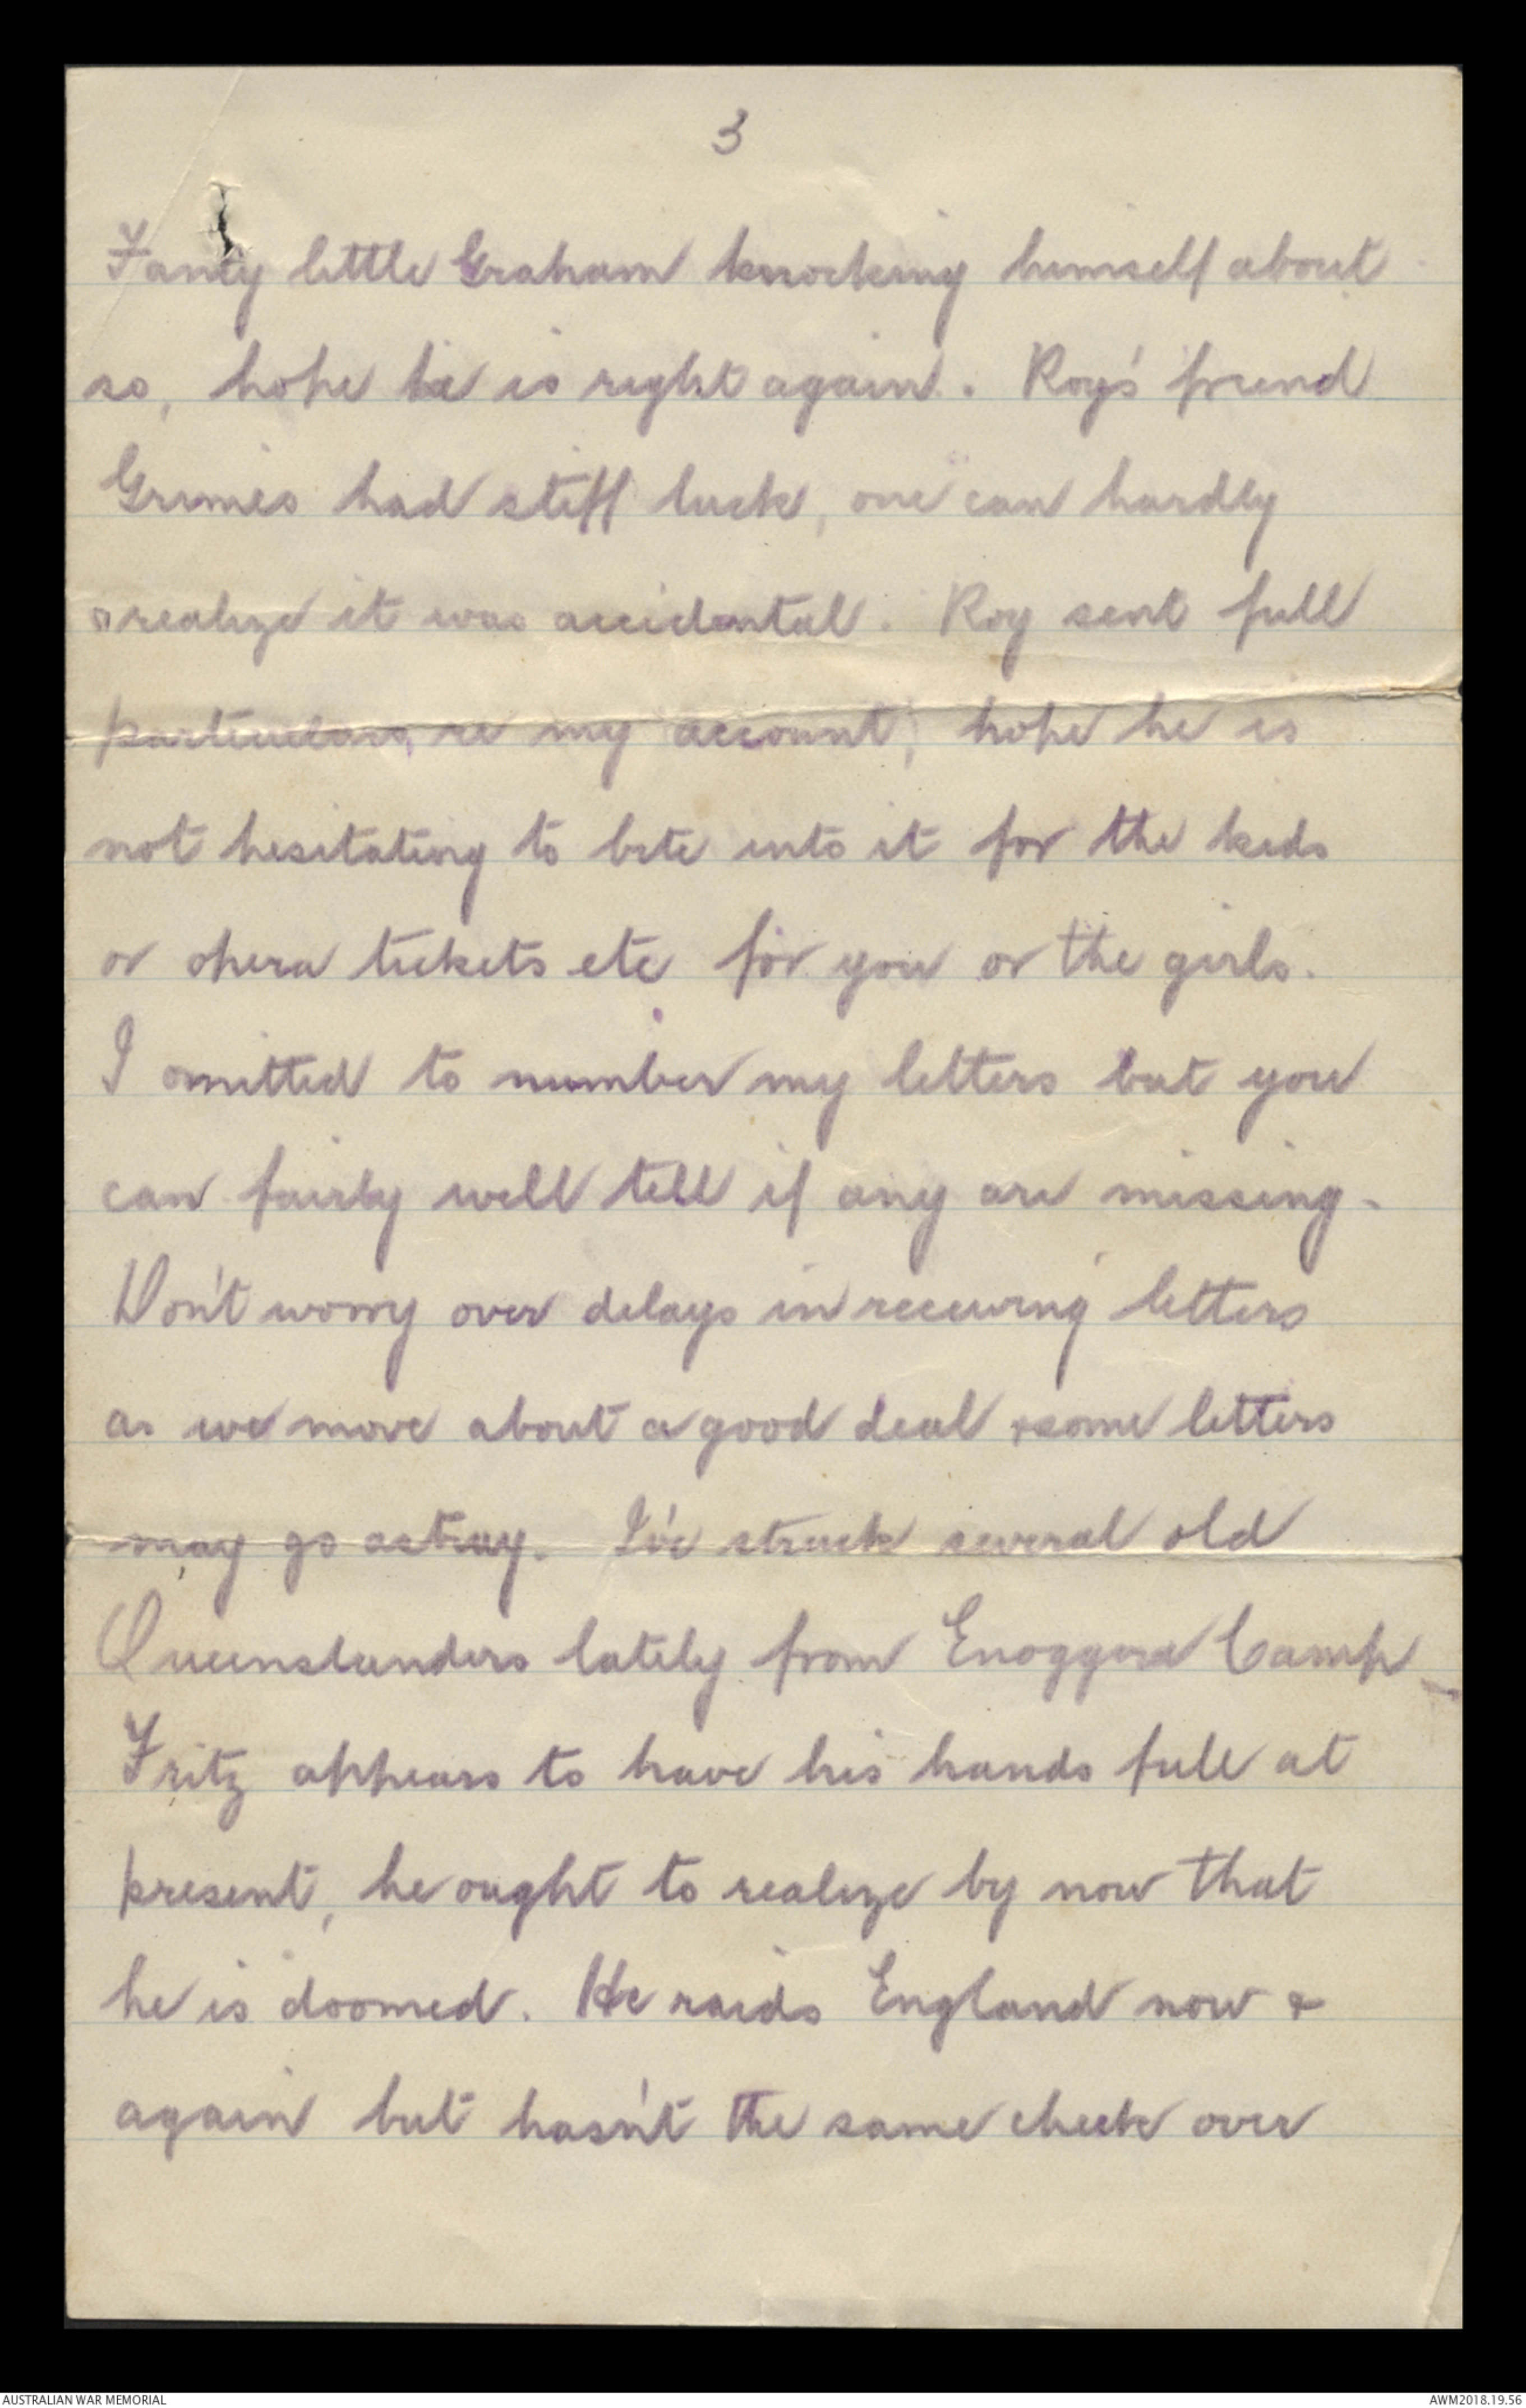 3
Fancy little Graham knocking himself about
so, hope he is right again. Roy's friend
Grimes had stiff luck, one can hardly
realize it was accidental. Roy sent full
particulars, re my account, hope he is
not hesitating to bite into it for the kids
or opera tickets etc for you or the girls.
I omitted to number my letters but you
can fairly well tell if any are missing.
Don't worry over delays in receiving letters
as we move about a good deal & some letters
may go astray. I've struck several old
Queenslanders lately from Enoggera Camp
Fritz appears to have his hands full at
present, he ought to realize by now that
he is doomed. He raids England now &
again but hasn't the same cheek over
AUSTRALIAN WAR MEMORIAL
AWM2018.19.56